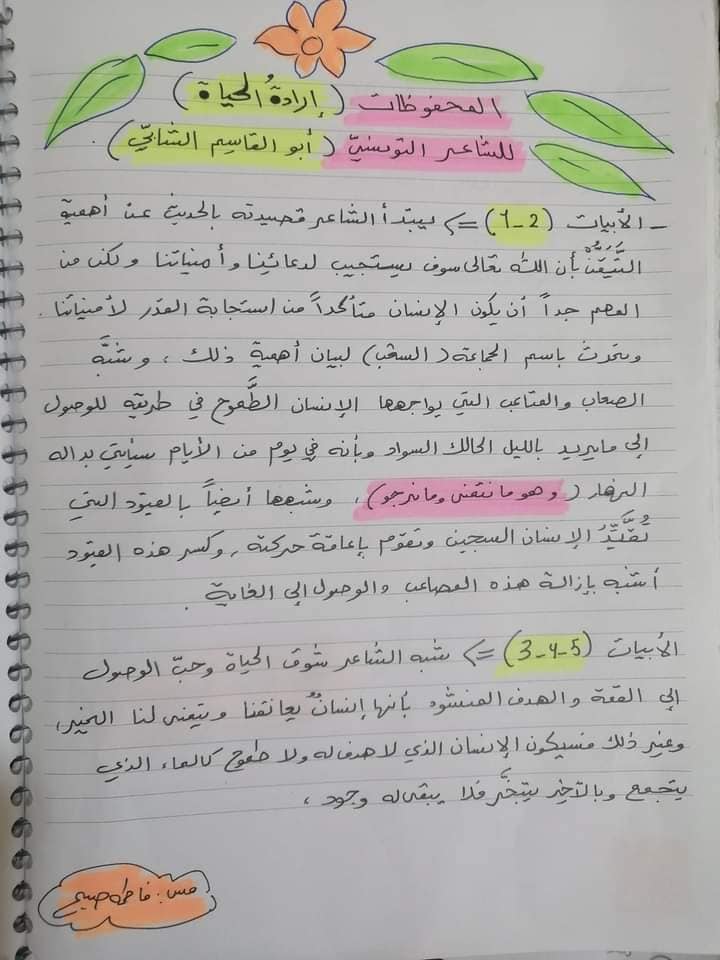 المحفوظات ( إرادةُ الحياة )
للشاعر التونسيّ ( أبو القاسم الشابّي ) .
- الأبيات (1-2) => يبتدأ الشاعر قصيدته بالحديث عن أهمية
التَّيَقُّنْ بأن الله تعالى سوف يستجيب لدعائنا وأمنياتنا ولكن من
المهم جداً أن يكون الإنسان متأكداً من استجابة القدر لأمنياتنا .
وتحدث باسم الجماعة ( الشعب ) لبيان أهمية ذلك ، وشبَّه
الصعاب والمتاعب التي يواجهها الإنسان الطَّموح في طريقه للوصول
إلى مايريد بالليل الحالك السواد وبأنه في يوم من الأيام سيأتي بداله
النهار ( وهو مانتمنى ومانرجو ) ، وشبهها أيضاً بالقيود التي
تُقَيِّدُ الإنسان السجين وتقوم بإعاقة حركته , وكسر هذه القيود
أشبه بإزالة هذه المصاعب والوصول إلى الغاية .
الأبيات (3-4-5) => شبه الشاعر شوق الحياة وحبّ الوصول
إلى القمة والهدف المنشود بأنها إنسانٌ يعانقنا ويتمنى لنا الخير ,
وغير ذلك فسيكون الإنسان الذي لاهدف له ولا طموح كالماء الذي
يتجمع وبالآخر يتبخَّر فلا يبقى له وجود ،
مس : فاطمة صبيح